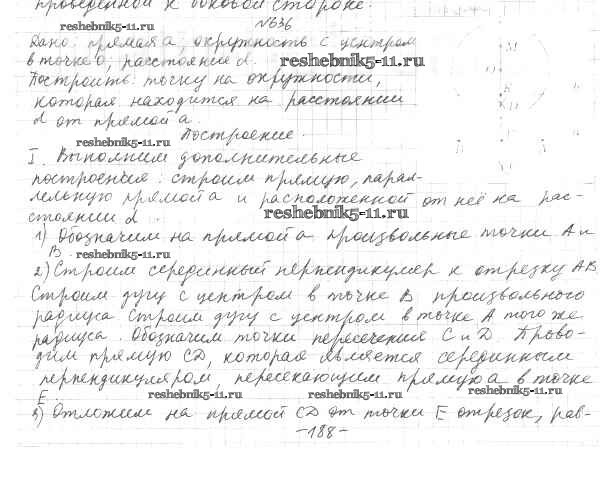 проведенной к боковой стороне.
№636
reshebnik5-11.ru
Дано: прямая a, окружность с центром
в точке O, расстояние d. reshebnik5-11.ru
Построить: точку на окружности,
которая находится на расстоянии
d от прямой a.
Построение.
reshebnik5-11.ru
I. Выполним дополнительные
построения: строим прямую, парал-
лельную прямой a и расположенной от неё на рас-
стоянии d. reshebnik5-11.ru
1) Обозначим на прямой a произвольные точки A и
B. reshebnik5-11.ru
2) Строим серединный перпендикуляр к отрезку AB
Строим дугу с центром в точке B произвольного
радиуса. Строим дугу с центром в точке A того же
радиуса. Обозначим точки пересечения C и D. Прово-
дим прямую CD, которая является серединным
перпендикуляром, пересекающим прямую a в точке
E. reshebnik5-11.ru reshebnik5-11.ru
3) Отложим на прямой CD от точки E отрезок, рав-
-188-
M
K